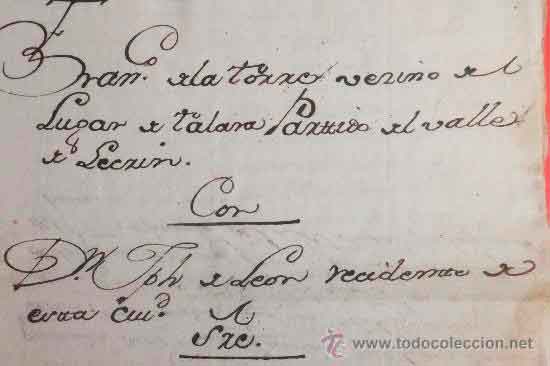 Franco. de la torre vezino del
Lugar de talara Partido del valle
de Lecrin.
Con
Dn. Jph de Leon recidente de
esta ciud.
Sre.
todocoleccion
© www.todocoleccion.net